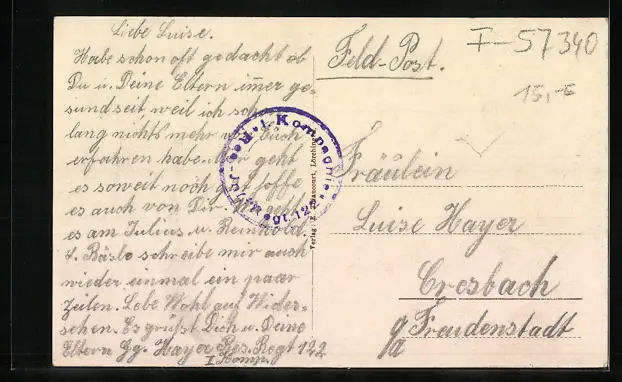 Liebe Luise.
Habe schon oft gedacht ob
Du u. Deine Eltern im̄er ge-
sund seit weil ich schon
lang nichts mehr von Euch
erfahren habe. geht
es soweit noch gut hoffe
es auch von Dir. Wie geht
es am Julius u. Reinhold.
L. Bäsle schreibe mir auch
wieder einmal ein paar
Zeilen. Lebe Wohl auf Wider-
sehen. Es grüßt Dich u. Deine
Eltern Gg. Hayer Res. Regt 122
I Komp.
Kompagnie
Verlag:
Feld-Post.
I-57340
15,-€
Fräulein
Luise Hayer
Cresbach
Freudenstadt